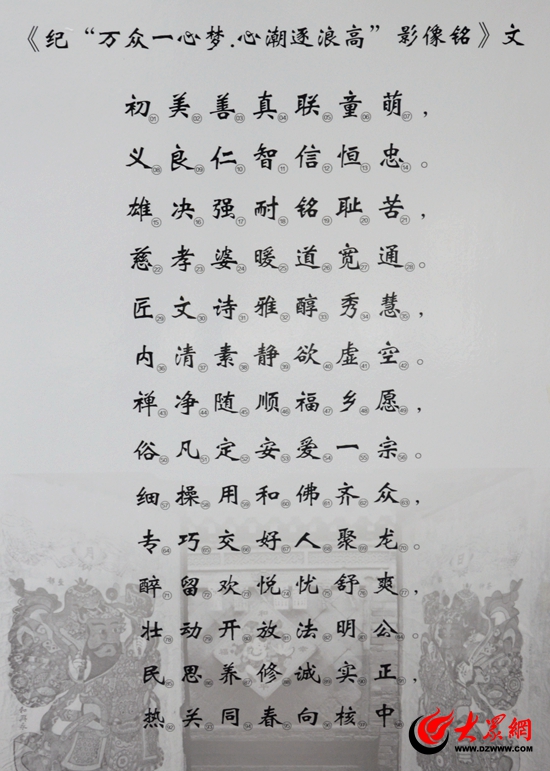 《纪“万众一心梦.心潮逐浪高”影像铭》文
初美善真联童萌，
义良仁智信恒忠。
雄决强耐铭耻苦，
慈孝婆暖道宽通。
匠文诗雅醇秀慧，
内清素静欲虚空。
禅净随顺福乡愿，
俗凡定安爱一宗。
细操用和佛齐众，
专巧交好人聚龙。
醉留欢悦忧舒爽，
壮动开放法明公。
民思养修诚实正，
热关同春向核中
大眾網
WWW.DZWWW.COM